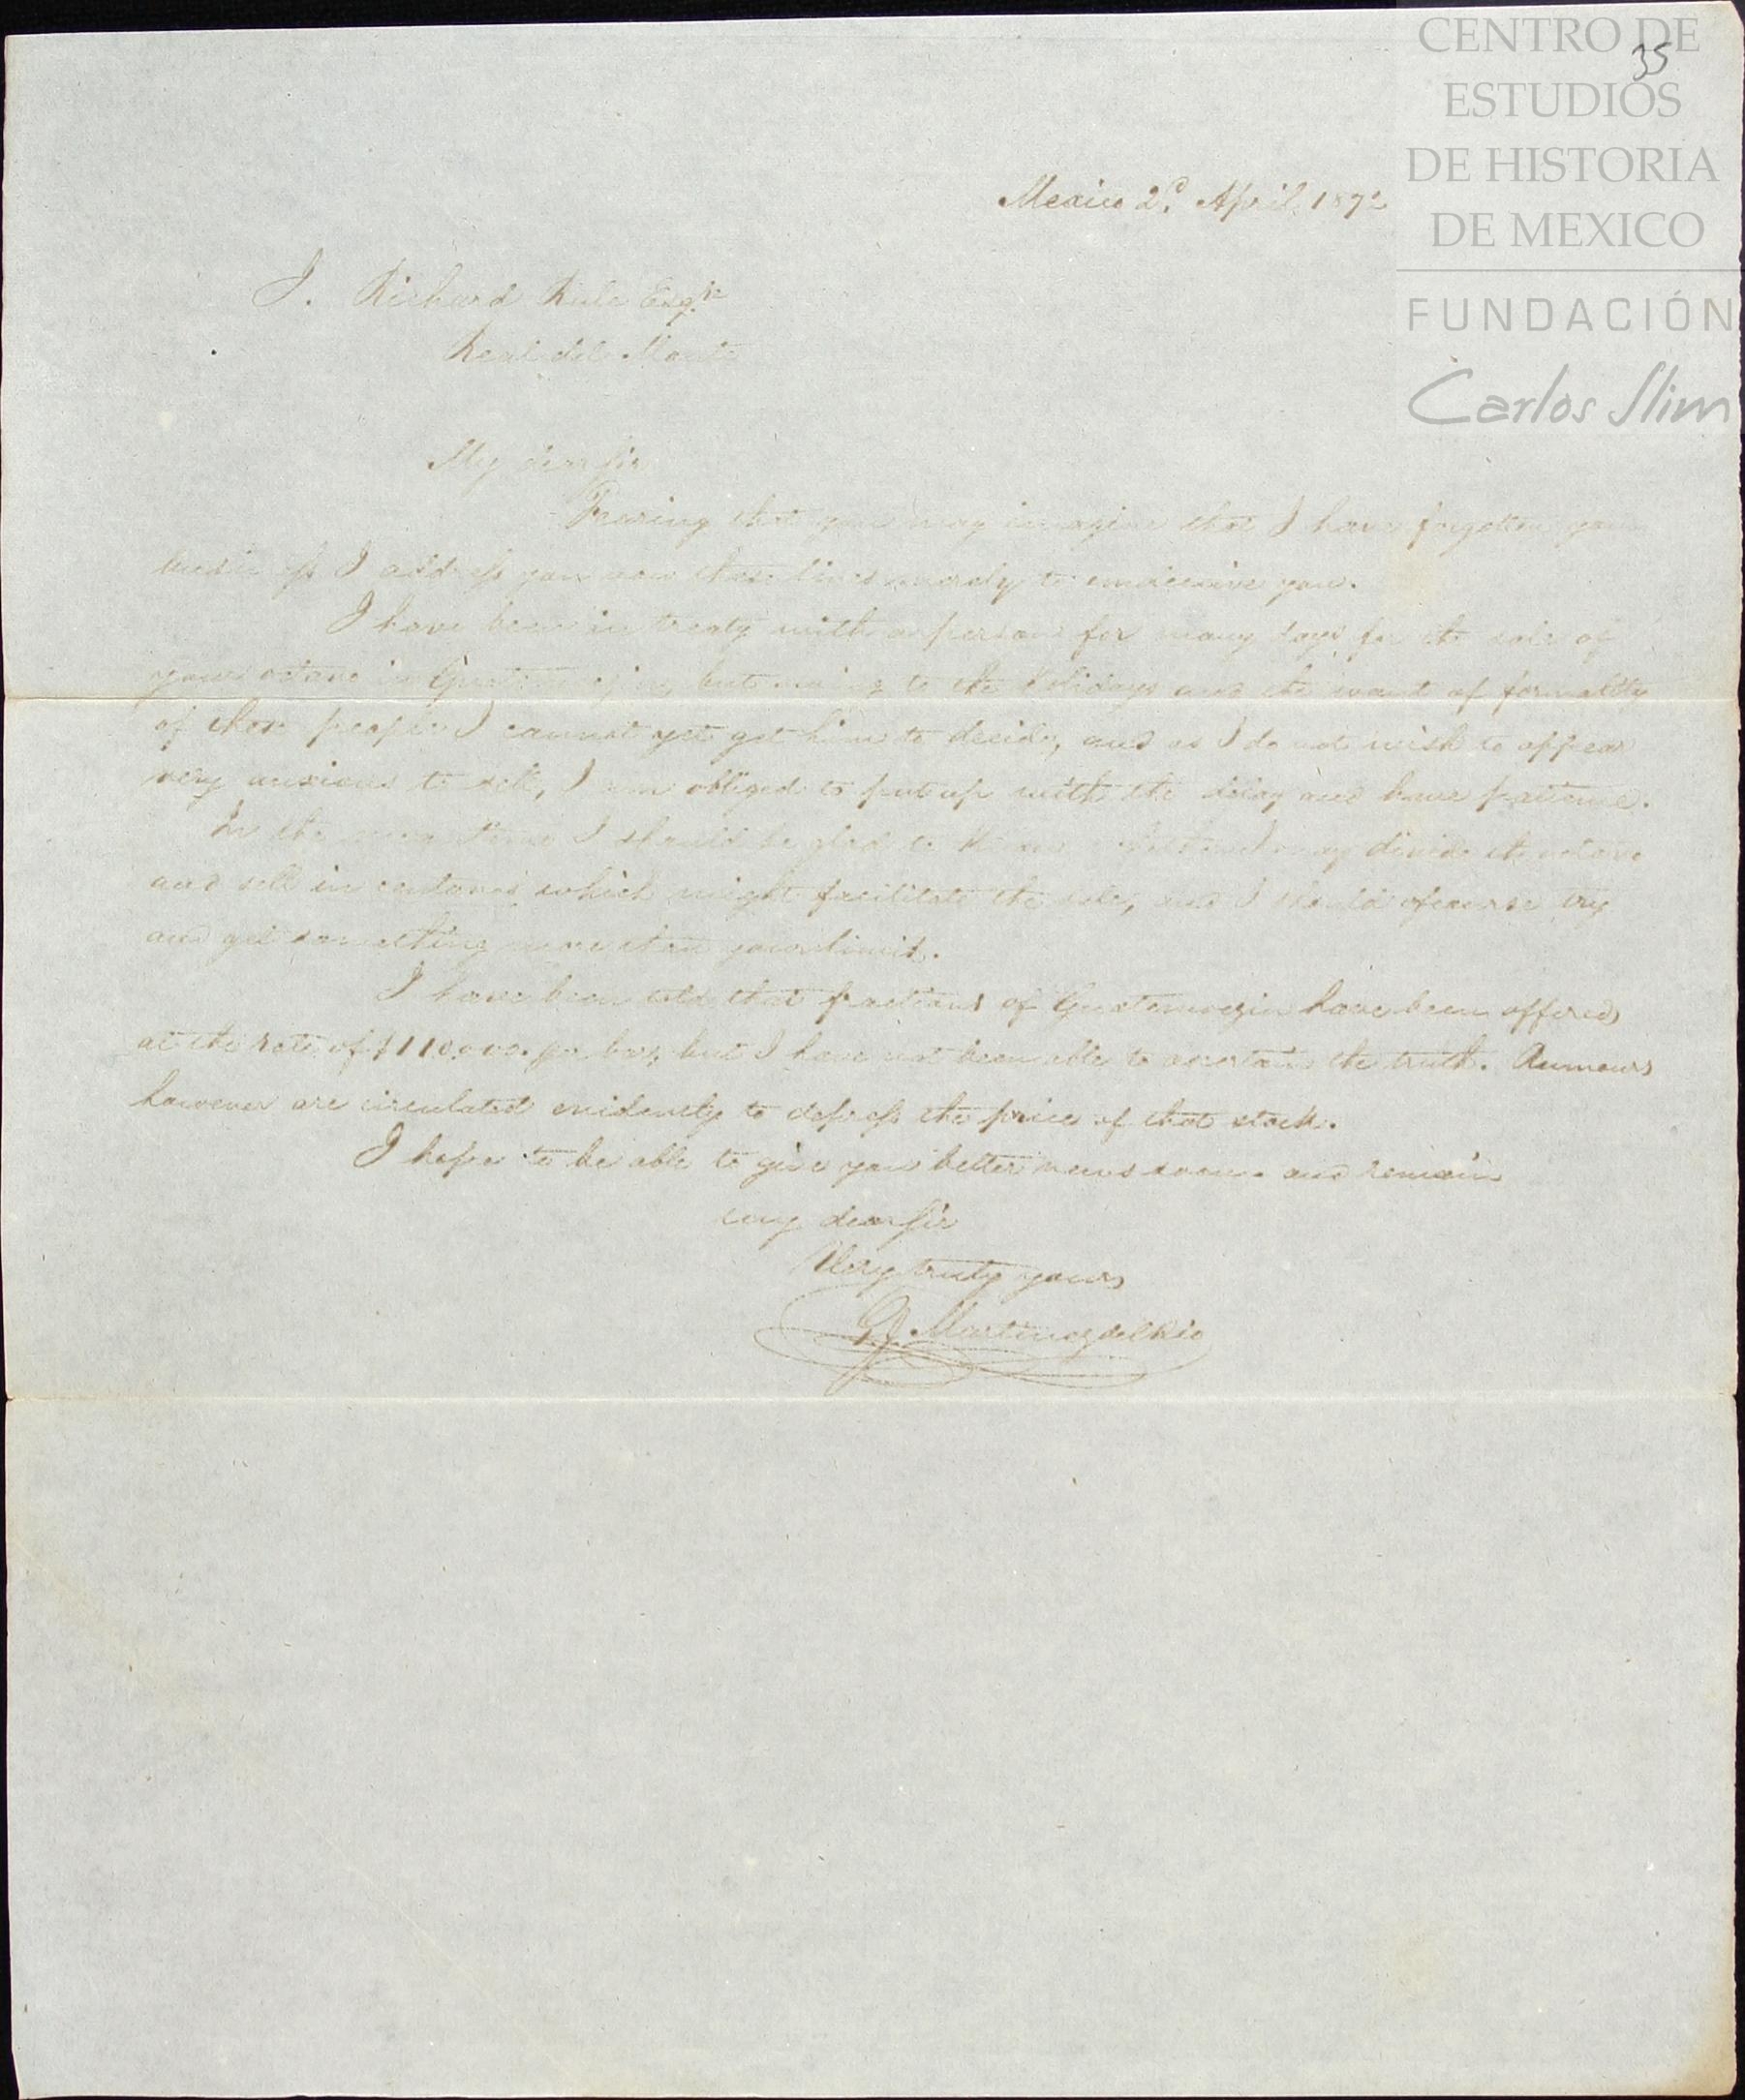 CENTRO DE
ESTUDIOS
DE HISTORIA
DE MEXICO
FUNDACIÓN
Carlos Slim
35
Mexico 2d April 1872
J. Richard Rule Esqre
Real del Monte
My dear Sir
Fearing that you may imagine that I have forgotten your
business I address you now these lines merely to undeceive you.
I have been in treaty with a person for many days for the sale of
your octavo in Guatimozin, but owing to the holidays and the want of formality
of these people I cannot yet get him to decide, and as I do not wish to appear
very anxious to sell, I am obliged to put up with the delay and have patience.
In the mean time I should be glad to know whether I may divide the octavo
and sell in which might facilitate the sale, and I should of course try
and get something more than your limit.
I have been told that fractions of Guatemozin have been offered
at the rate of $110,000. per bar, but I have not been able to ascertain the truth. Rumours
however are circulated evidently to depress the price of that stock.
I hope to be able to give you better news soon. and remain
my dear Sir
Very truly yours
G. Martinez del Rio